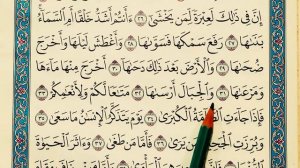 إِنَّ فِي ذَٰلِكَ لَعِبْرَةً لِّمَن يَخْشَىٰٓ ٢٦ ءَأَنتُمْ أَشَدُّ خَلْقًا أَمِ ٱلسَّمَآءُ
بَنَىٰهَا ٢٧ رَفَعَ سَمْكَهَا فَسَوَّىٰهَا ٢٨ وَأَغْطَشَ لَيْلَهَا وَأَخْرَجَ
ضُحَىٰهَا ٢٩ وَٱلْأَرْضَ بَعْدَ ذَٰلِكَ دَحَىٰهَآ ٣٠ أَخْرَجَ مِنْهَا مَآءَهَا
وَمَرْعَىٰهَا ٣١ وَٱلْجِبَالَ أَرْسَىٰهَا ٣٢ مَتَـٰعًا لَّكُمْ وَلِأَنْعَـٰمِكُمْ ٣٣
فَإِذَا جَآءَتِ ٱلطَّآمَّةُ ٱلْكُبْرَىٰ ٣٤ يَوْمَ يَتَذَكَّرُ ٱلْإِنسَـٰنُ مَا سَعَىٰ ٣٥
وَبُرِّزَتِ ٱلْجَحِيمُ لِمَن يَرَىٰ ٣٦ فَأَمَّا مَن طَغَىٰ ٣٧ وَءَاثَرَ ٱلْحَيَوٰةَ